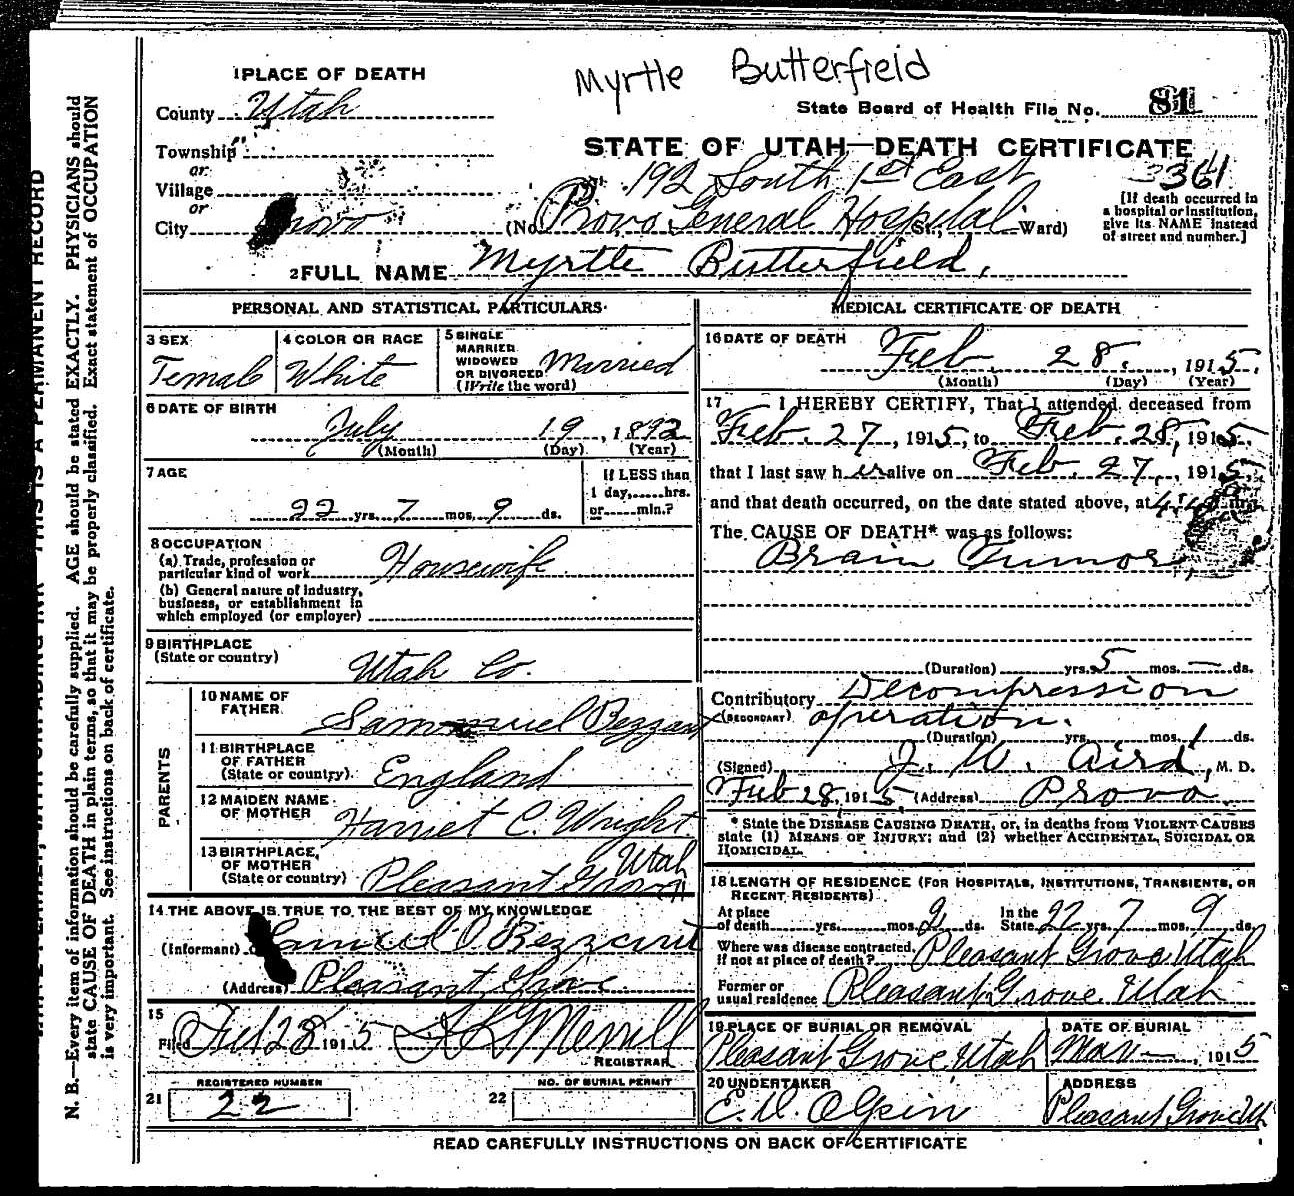 Myrtle Butterfield
1 PLACE OF DEATH
County Utah
State Board of Health File No. 81
Township
or
Village
or
City Provo
STATE OF UTAH—DEATH CERTIFICATE
192 South 1st East
361
(No. Provo General Hospital St., Ward)
[If death occurred in a hospital or institution, give its NAME instead of street and number.]
2 FULL NAME Myrtle Butterfield.
PERSONAL AND STATISTICAL PARTICULARS
3 SEX Female
4 COLOR OR RACE White
5 SINGLE MARRIED WIDOWED OR DIVORCED (Write the word) Married
6 DATE OF BIRTH
July 19, 1892
(Month) (Day) (Year)
7 AGE
22 yrs. 7 mos. 9 ds.
If LESS than 1 day,......hrs. or......min.?
8 OCCUPATION
(a) Trade, profession or particular kind of work Housewife
(b) General nature of industry, business, or establishment in which employed (or employer)
9 BIRTHPLACE
(State or country) Utah Co.
PARENTS
10 NAME OF FATHER Sammuel Bezzant
11 BIRTHPLACE OF FATHER (State or country) England
12 MAIDEN NAME OF MOTHER Harriet C. Wright
13 BIRTHPLACE OF MOTHER (State or country) Pleasant Grove Utah
14 THE ABOVE IS TRUE TO THE BEST OF MY KNOWLEDGE
(Informant) Samuel Bezzant
(Address) Pleasant Grove
15
Filed Feb 28 1915 Merrill
REGISTRAR
21 REGISTERED NUMBER 22
22 NO. OF BURIAL PERMIT
MEDICAL CERTIFICATE OF DEATH
16 DATE OF DEATH Feb. 28., 1915.
(Month) (Day) (Year)
17 I HEREBY CERTIFY, That I attended deceased from
Feb. 27, 1915, to Feb. 28, 1915,
that I last saw her alive on Feb. 27, 1915,
and that death occurred, on the date stated above, at
The CAUSE OF DEATH* was as follows:
Brain Tumor,
(Duration) yrs. 5 mos. — ds.
Contributory Decompression
(SECONDARY) operation.
(Duration) yrs. mos. 1 ds.
(Signed) J. W. Aird, M. D.
Feb 28, 1915. (Address) Provo.
* State the DISEASE CAUSING DEATH, or, in deaths from VIOLENT CAUSES state (1) MEANS OF INJURY; and (2) whether ACCIDENTAL, SUICIDAL OR HOMICIDAL.
18 LENGTH OF RESIDENCE (FOR HOSPITALS, INSTITUTIONS, TRANSIENTS, OR RECENT RESIDENTS)
At place of death yrs. mos. 2 ds. In the State 22 yrs. 7 mos. 9 ds.
Where was disease contracted, if not at place of death? Pleasant Grove Utah
Former or usual residence Pleasant Grove Utah
19 PLACE OF BURIAL OR REMOVAL Pleasant Grove Utah
DATE OF BURIAL Mar — , 1915
20 UNDERTAKER E. D. Olpin
ADDRESS Pleasant Grove Ut
READ CAREFULLY INSTRUCTIONS ON BACK OF CERTIFICATE
THIS IS A PERMANENT RECORD
N. B.—Every item of information should be carefully supplied. AGE should be stated EXACTLY. PHYSICIANS should
state CAUSE OF DEATH in plain terms, so that it may be properly classified. Exact statement of OCCUPATION
is very important. See instructions on back of certificate.